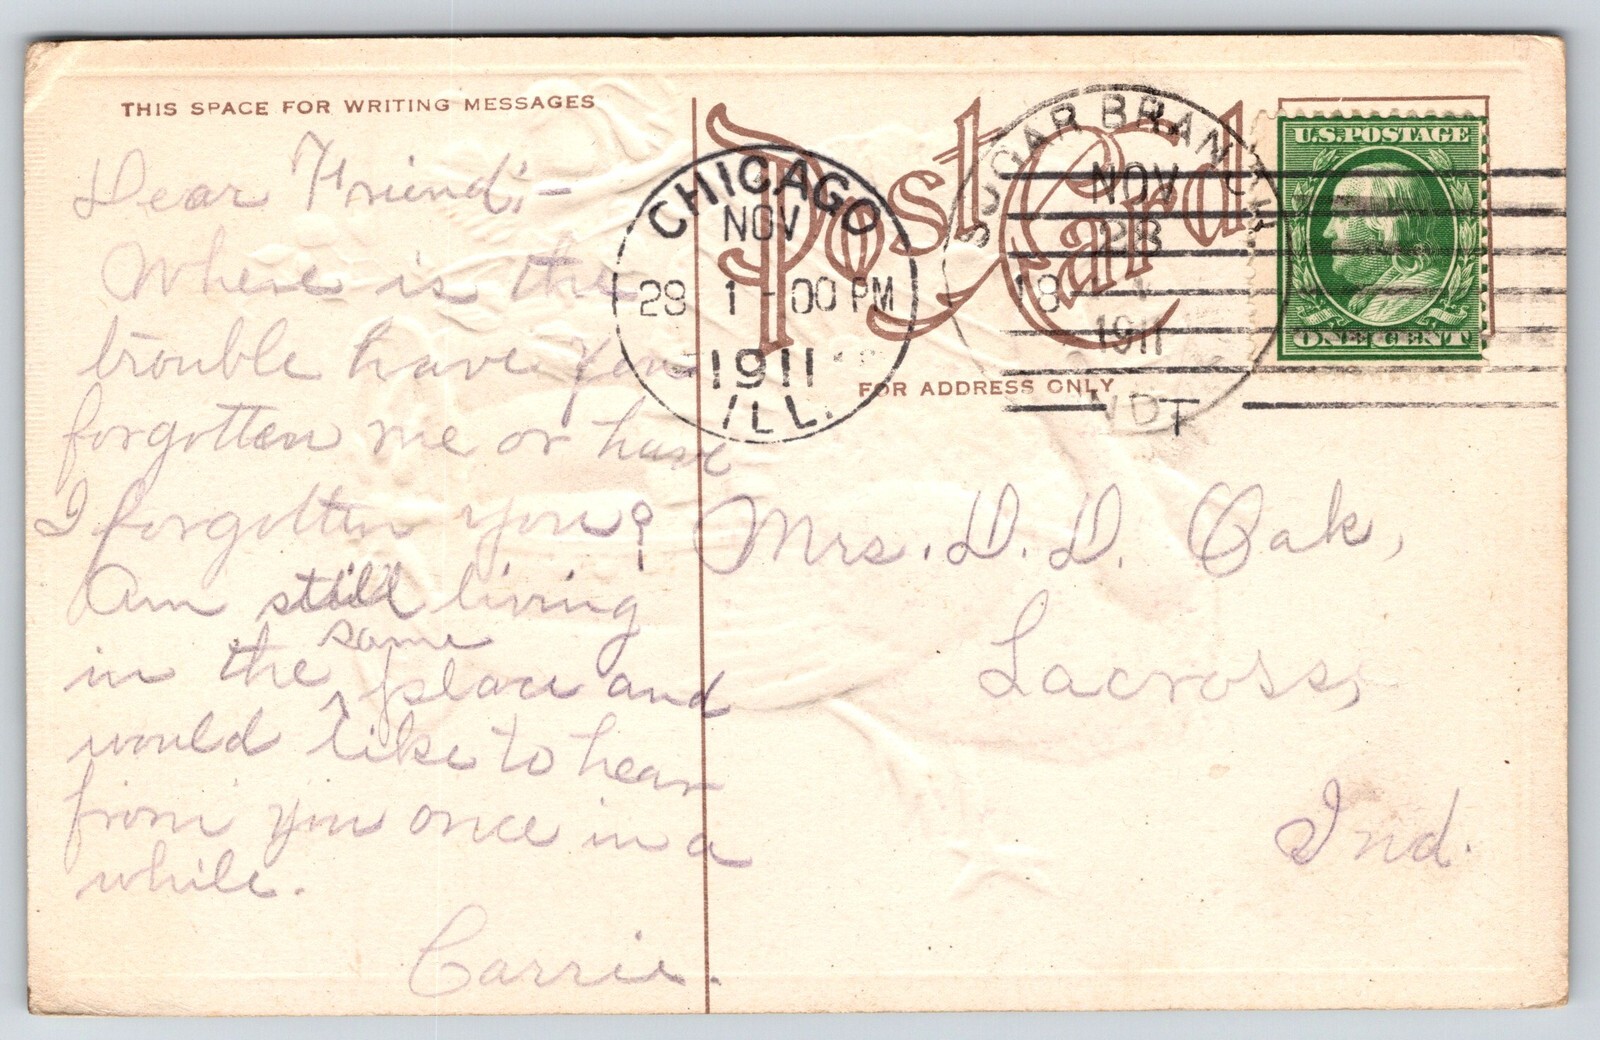 THIS SPACE FOR WRITING MESSAGES
Post Card
FOR ADDRESS ONLY
CHICAGO
NOV
28 1-00 PM
1911
ILL.
SUGAR BRANCH
NOV
28
18
1911
U.S. POSTAGE
ONE CENT
Dear Friend:-
Where is the
trouble have you
forgotten me or have
I forgotten you?
Am still living
in the same place and
would like to hear
from you once in a
while.
Carrie.
Mrs. D. D. Oak,
Lacross,
Ind.